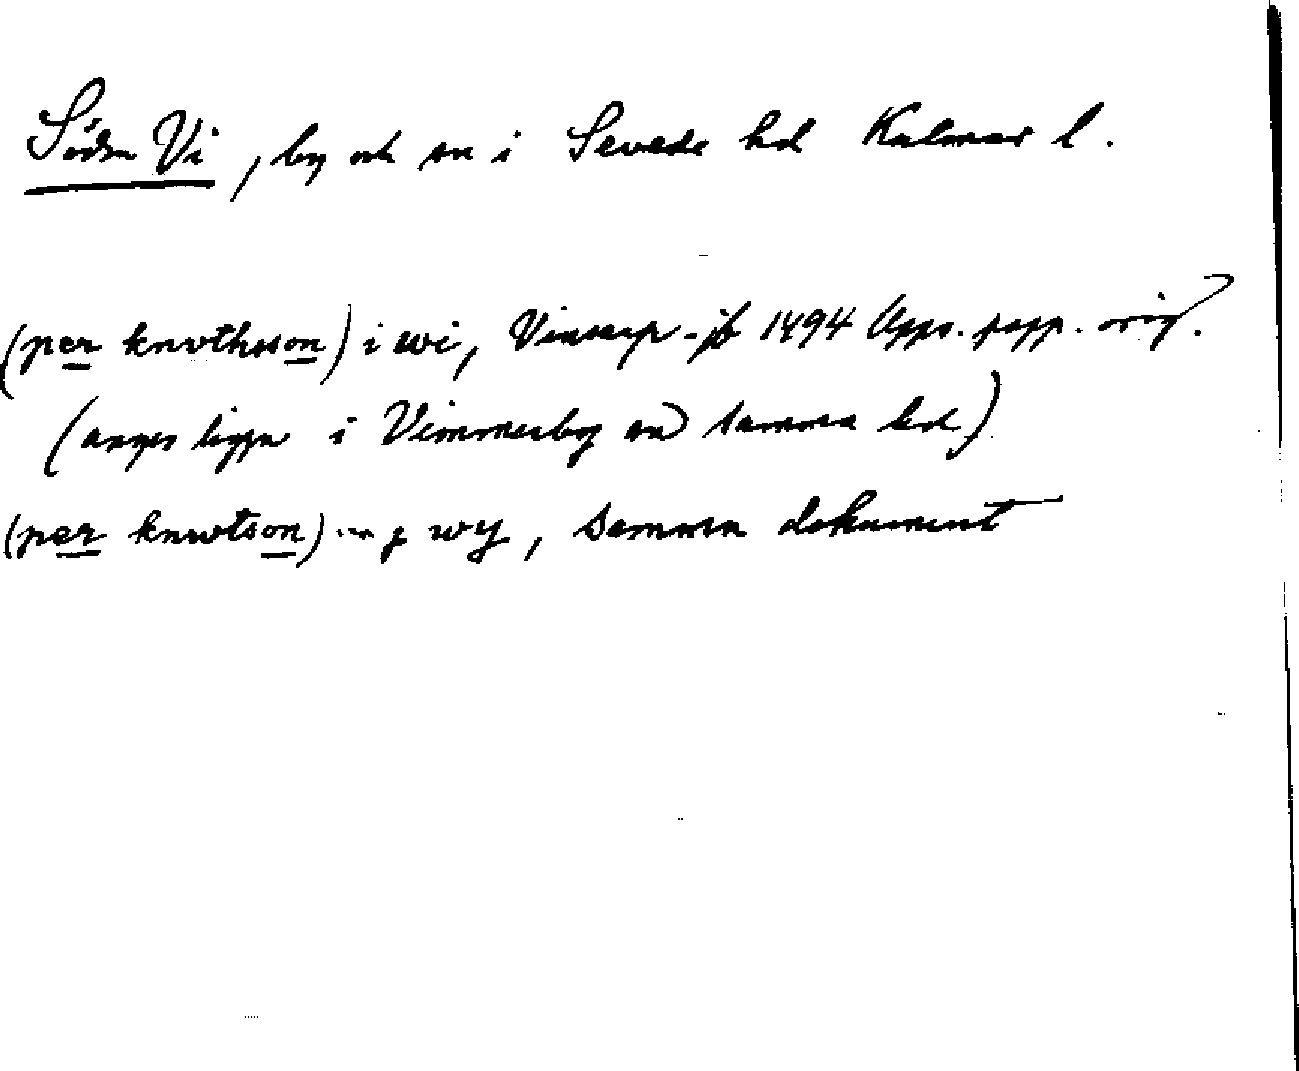 Södra Vi, by och sn i Sevede hd Kalmar l.
(per knvthsson) i wi, Vinstorp-jb 1494 Upps. papp. orig.
(anges ligga i Vimmerby sn samma hd)
(per knwtson) ... j wy, samma dokument